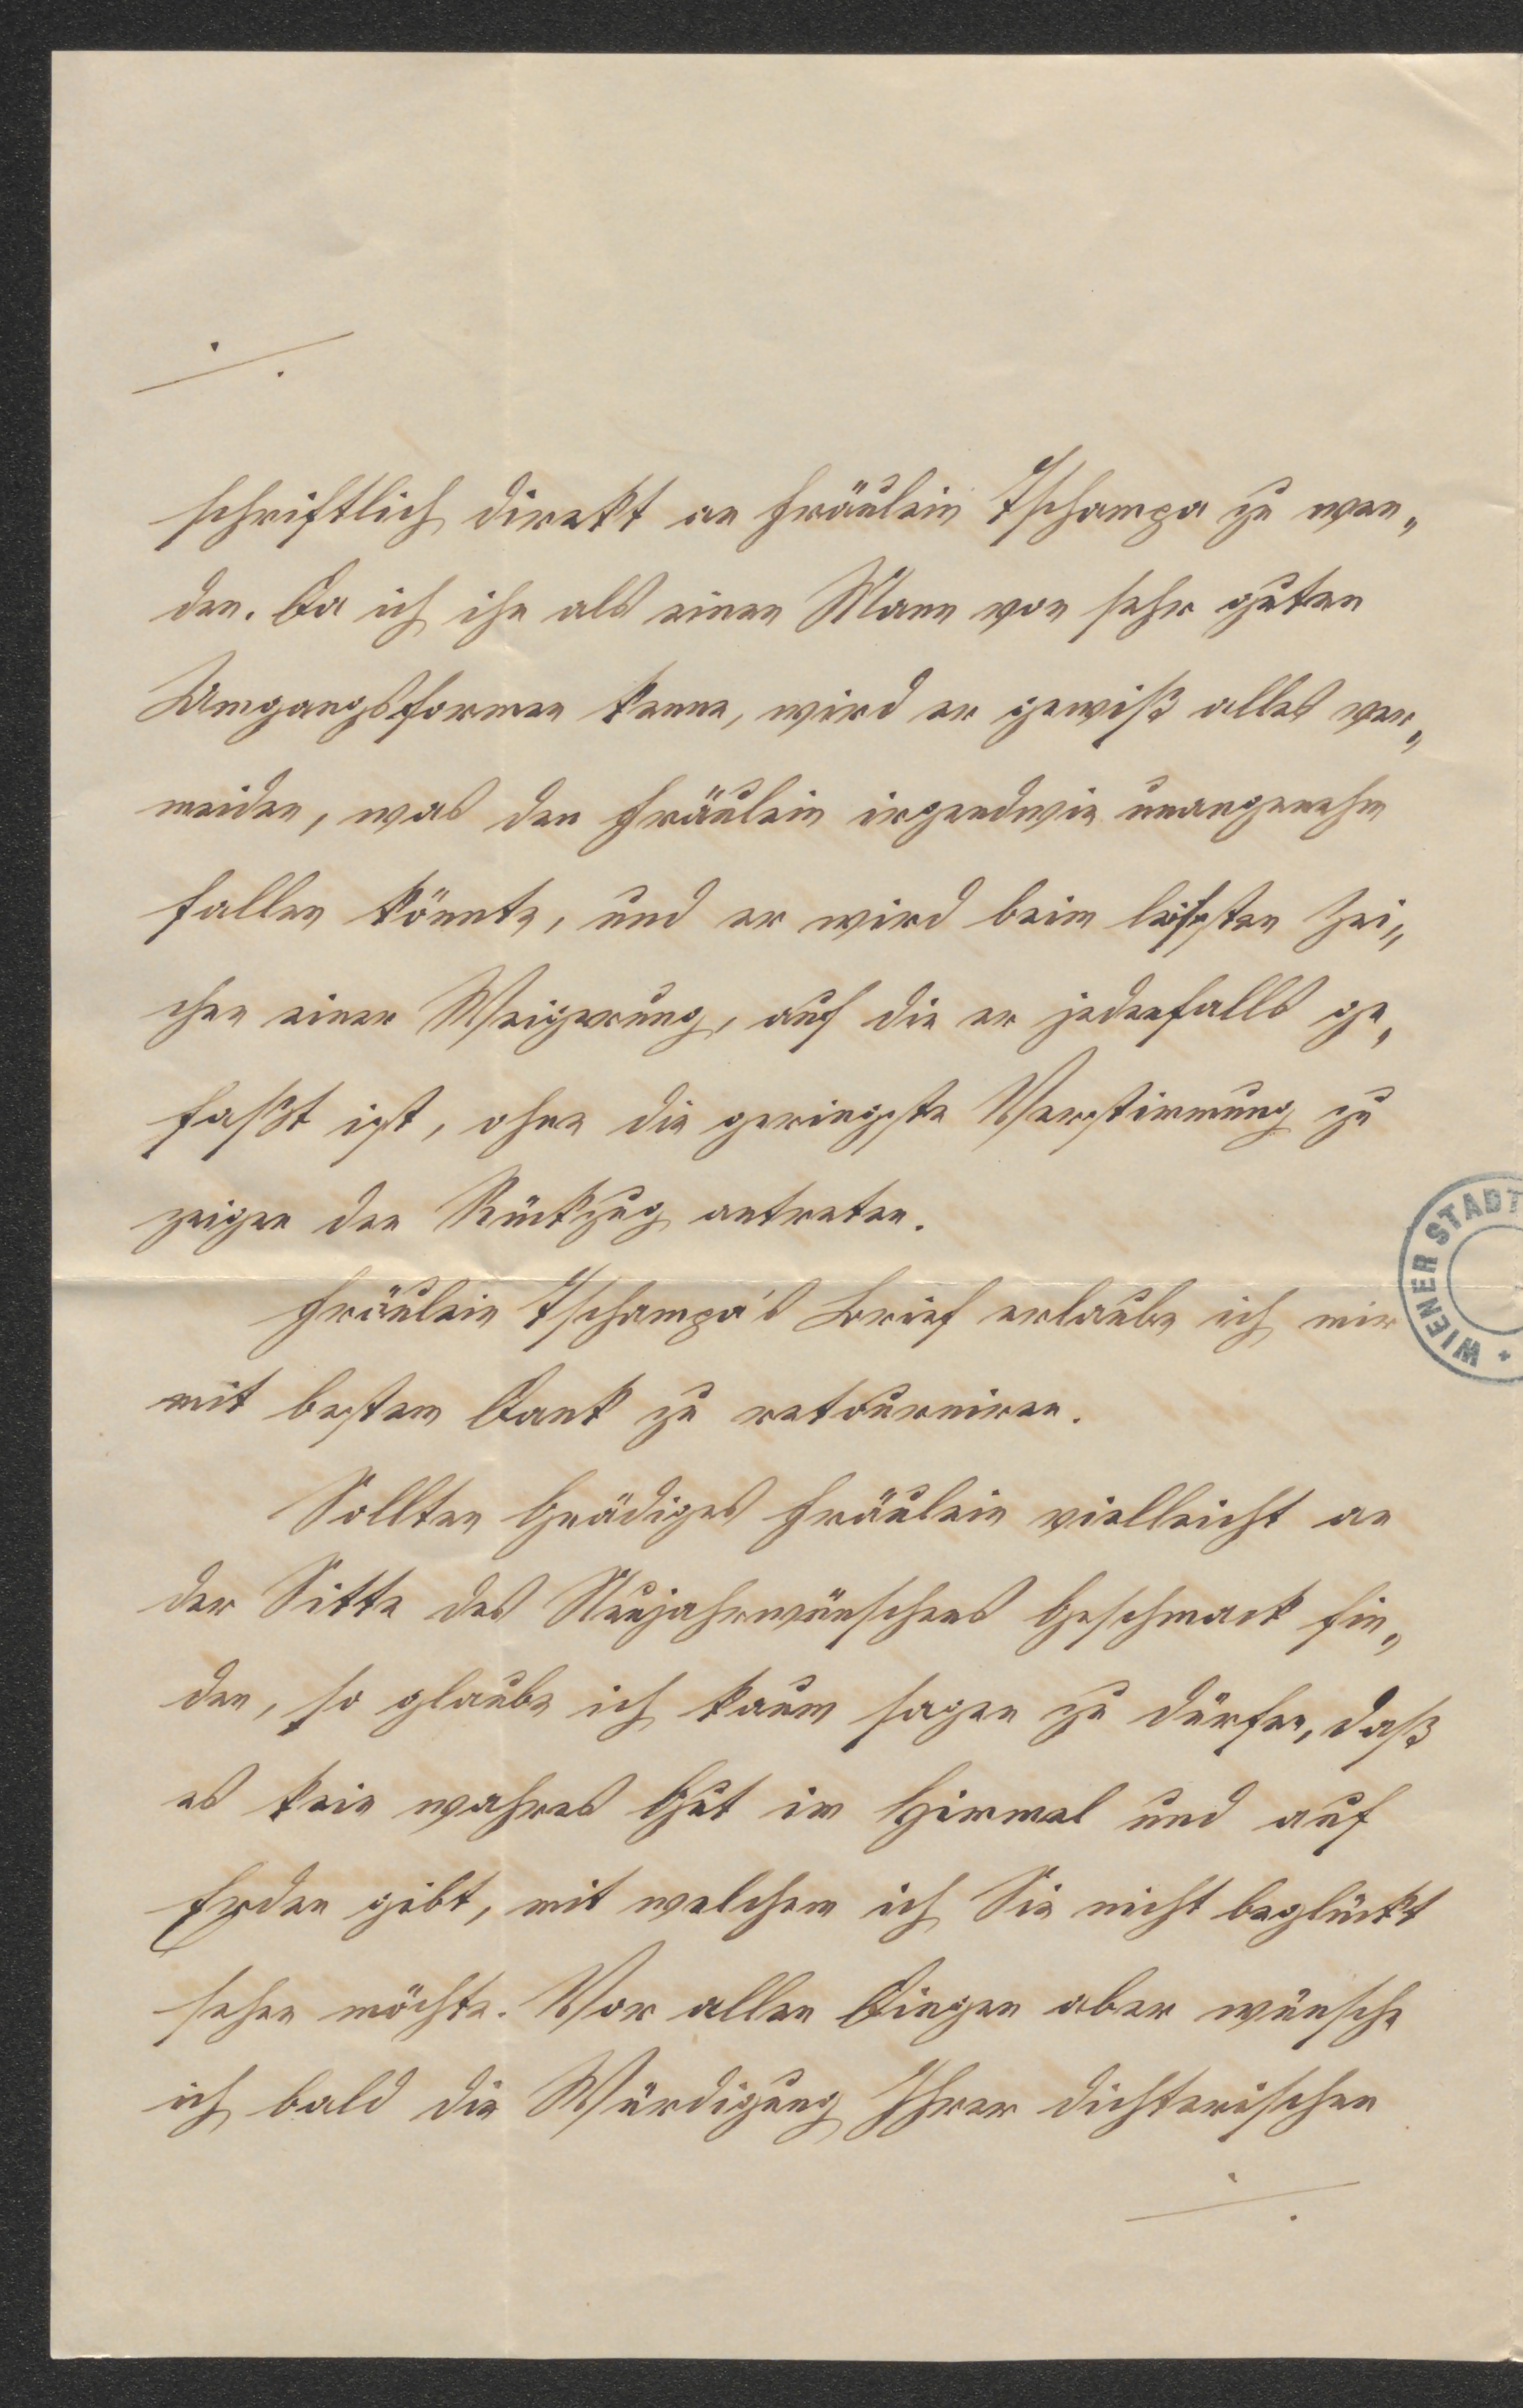 ./.
schriftlich direkt an Fräulein Tschampa zu wen„
den. Da ich ihn als einen Mann von sehr guten
Umgangsformen kenne, wird er gewiß alles ver„
meiden, was den Fräulein irgendwie unangenehm
fallen könnte, und er wird beim leisesten Zei„
chen einer Weigerung, auf die er jedenfalls ge„
faßt ist, ohne die geringste Verstimmung zu
zeigen den Rückzug antreten.
Fräulein Tschampa's Brief erlaube ich mir
mit bestem Dank zu retourniren.
Sollten Gnädiges Fräulein vielleicht an
der Sitte des Neujahrwünschens Geschmack fin„
den, so glaube ich kaum sagen zu dürfen, daß
es kein wahres Gut im Himmel und auf
Erden gibt, mit welchem ich Sie nicht beglückt
sehen möchte. Vor allen Dingen aber wünsche
ich bald die Würdigung Ihrer dichterischen
./.
WIENER STADT